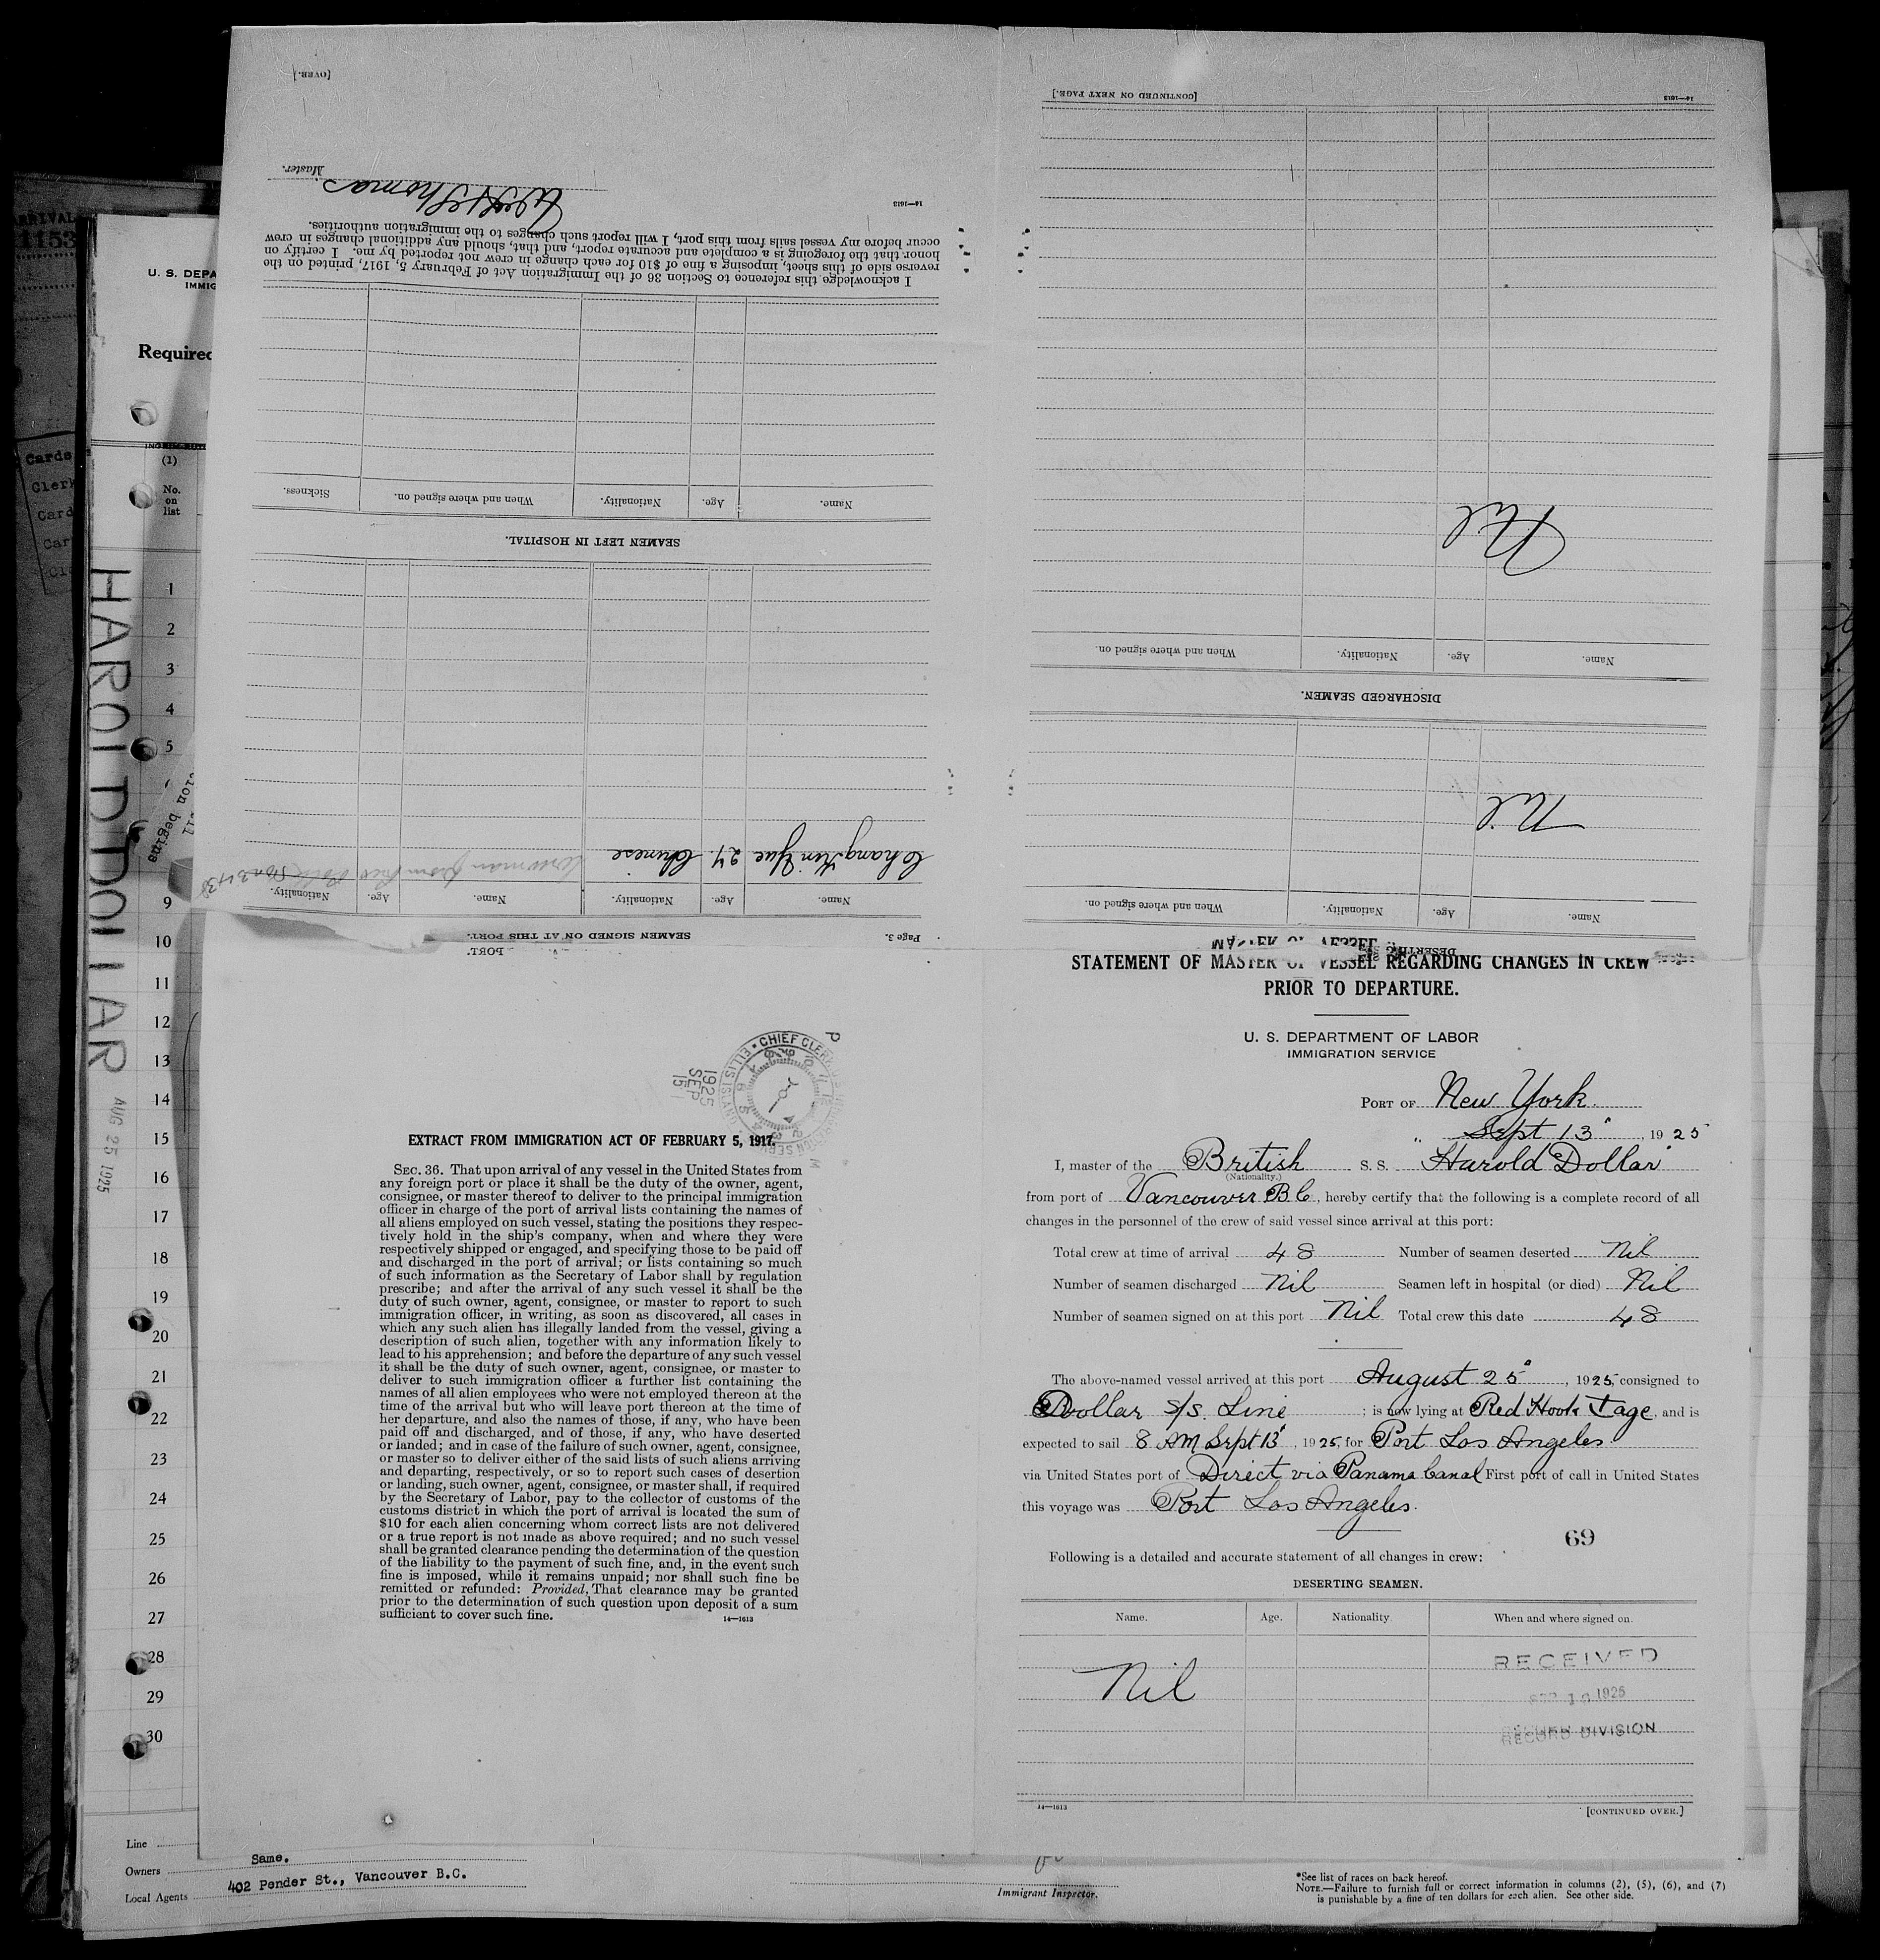 [OVER.]
Master.
W H Thomas
14—1613
I acknowledge this reference to Section 36 of the Immigration Act of February 5, 1917, printed on the
reverse side of this sheet, imposing a fine of $10 for each change in crew not reported by me. I certify on
honor that the foregoing is a complete and accurate report, and that, should any additional changes in crew
occur before my vessel sails from this port, I will report such changes to the immigration authorities.
Name. Age. Nationality. When and where signed on. Sickness.
SEAMEN LEFT IN HOSPITAL.
Chang Kin Yue 24 Chinese
Name. Age. Nationality. Name. Age. Nationality.
Page 3. SEAMEN SIGNED ON AT THIS PORT.
PORT.
[CONTINUED ON NEXT PAGE.]
14—1613
Nil
Name. Age. Nationality. When and where signed on.
DISCHARGED SEAMEN.
Nil
Name. Age. Nationality. When and where signed on.
ARRIVAL
1153
U. S. DEPA
IMMIG
Required
Cards
Clerk
Card
Car
(1)
No.
on
list
1
2
3
4
5
9
10
11
12
13
14
15
16
17
18
19
20
21
22
23
24
25
26
27
28
29
30
ion begins
HAROLD DOLLAR
AUG 25 1925
CHIEF CLERK
ELLIS ISLAND
1925
SEP
15
P
M
EXTRACT FROM IMMIGRATION ACT OF FEBRUARY 5, 1917.
SEC. 36. That upon arrival of any vessel in the United States from
any foreign port or place it shall be the duty of the owner, agent,
consignee, or master thereof to deliver to the principal immigration
officer in charge of the port of arrival lists containing the names of
all aliens employed on such vessel, stating the positions they respec-
tively hold in the ship's company, when and where they were
respectively shipped or engaged, and specifying those to be paid off
and discharged in the port of arrival; or lists containing so much
of such information as the Secretary of Labor shall by regulation
prescribe; and after the arrival of any such vessel it shall be the
duty of such owner, agent, consignee, or master to report to such
immigration officer, in writing, as soon as discovered, all cases in
which any such alien has illegally landed from the vessel, giving a
description of such alien, together with any information likely to
lead to his apprehension; and before the departure of any such vessel
it shall be the duty of such owner, agent, consignee, or master to
deliver to such immigration officer a further list containing the
names of all alien employees who were not employed thereon at the
time of the arrival but who will leave port thereon at the time of
her departure, and also the names of those, if any, who have been
paid off and discharged, and of those, if any, who have deserted
or landed; and in case of the failure of such owner, agent, consignee,
or master so to deliver either of the said lists of such aliens arriving
and departing, respectively, or so to report such cases of desertion
or landing, such owner, agent, consignee, or master shall, if required
by the Secretary of Labor, pay to the collector of customs of the
customs district in which the port of arrival is located the sum of
$10 for each alien concerning whom correct lists are not delivered
or a true report is not made as above required; and no such vessel
shall be granted clearance pending the determination of the question
of the liability to the payment of such fine, and, in the event such
fine is imposed, while it remains unpaid; nor shall such fine be
remitted or refunded: Provided, That clearance may be granted
prior to the determination of such question upon deposit of a sum
sufficient to cover such fine.
14—1613
STATEMENT OF MASTER OF VESSEL REGARDING CHANGES IN CREW
PRIOR TO DEPARTURE.
U. S. DEPARTMENT OF LABOR
IMMIGRATION SERVICE
PORT OF New York.
Sept 13, 1925
I, master of the British S. S. "Harold Dollar"
(Nationality.)
from port of Vancouver B C, hereby certify that the following is a complete record of all
changes in the personnel of the crew of said vessel since arrival at this port:
Total crew at time of arrival 48 Number of seamen deserted Nil
Number of seamen discharged Nil Seamen left in hospital (or died) Nil
Number of seamen signed on at this port Nil Total crew this date 48
The above-named vessel arrived at this port August 25, 1925, consigned to
Dollar S/S. Line; is now lying at Red Hook Flage, and is
expected to sail 8 AM Sept 13, 1925, for Port Los Angeles
via United States port of Direct via Panama Canal First port of call in United States
this voyage was Port Los Angeles.
69
Following is a detailed and accurate statement of all changes in crew:
DESERTING SEAMEN.
Name. Age. Nationality. When and where signed on.
Nil
RECEIVED
SEP 16 1925
RECORD DIVISION
14—1613
[CONTINUED OVER.]
Line
Owners Same.
Local Agents 402 Pender St., Vancouver B.C.
Immigrant Inspector.
*See list of races on back hereof.
NOTE.—Failure to furnish full or correct information in columns (2), (5), (6), and (7)
is punishable by a fine of ten dollars for each alien. See other side.